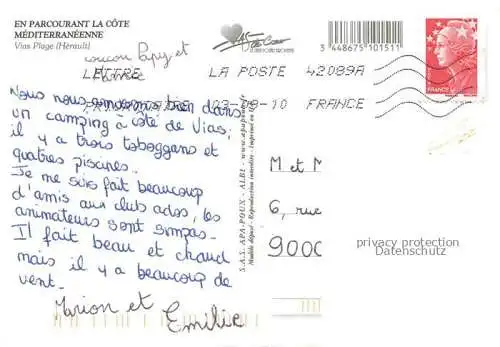 EN PARCOURANT LA CÔTE
MÉDITERRANÉENNE
Vias Plage (Hérault)
coucou Papy et
Mamie
LETTRE
LA POSTE 42089A
23-08-10 FRANCE
3 448675 101511
FRANCE
Nous nous amusons bien dans
un camping à côté de Vias,
il y a trois toboggans et
quatres piscines.
Je me suis fait beaucoup
d'amis aux clubs ados, les
animateurs sont sympas.
Il fait beau et chaud
mais il y a beaucoup de
vent.
Marion et Emilie
S.A.S. APA-POUX - ALBI -
Modèle déposé - Reproduction interdite - Imprimé en
M et M
6, rue
9000
privacy protection
Datenschutz